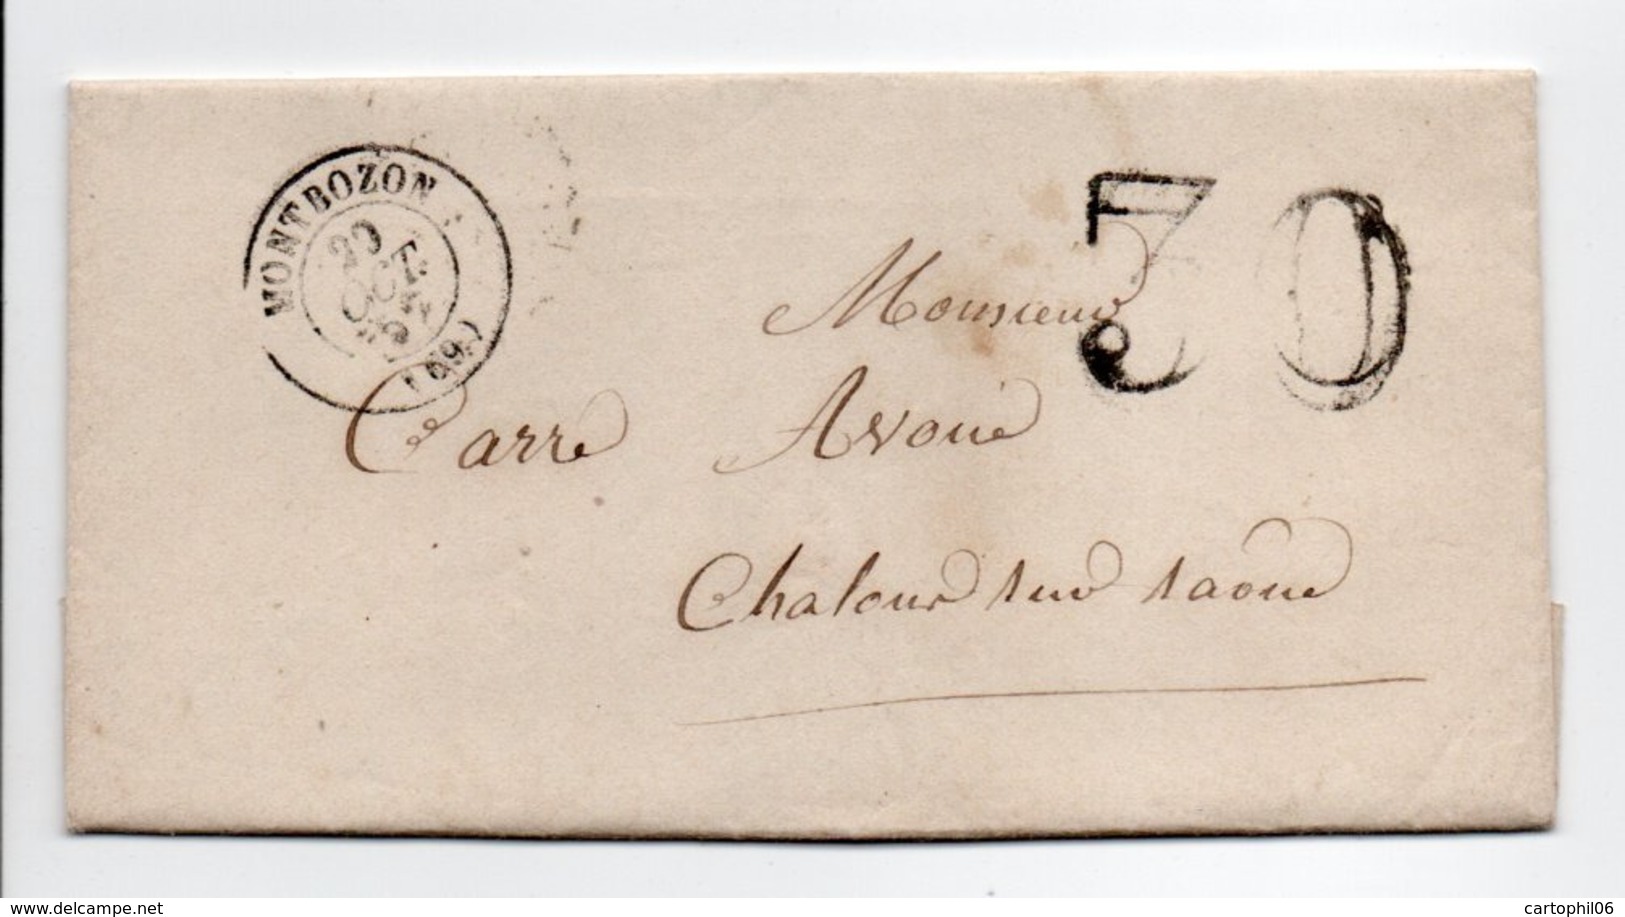 MONTBOZON
20
OCT.
57
(69)
30
Monsieur
Carré Avoué
Chalons sur saône
www.delcampe.net
cartophil06